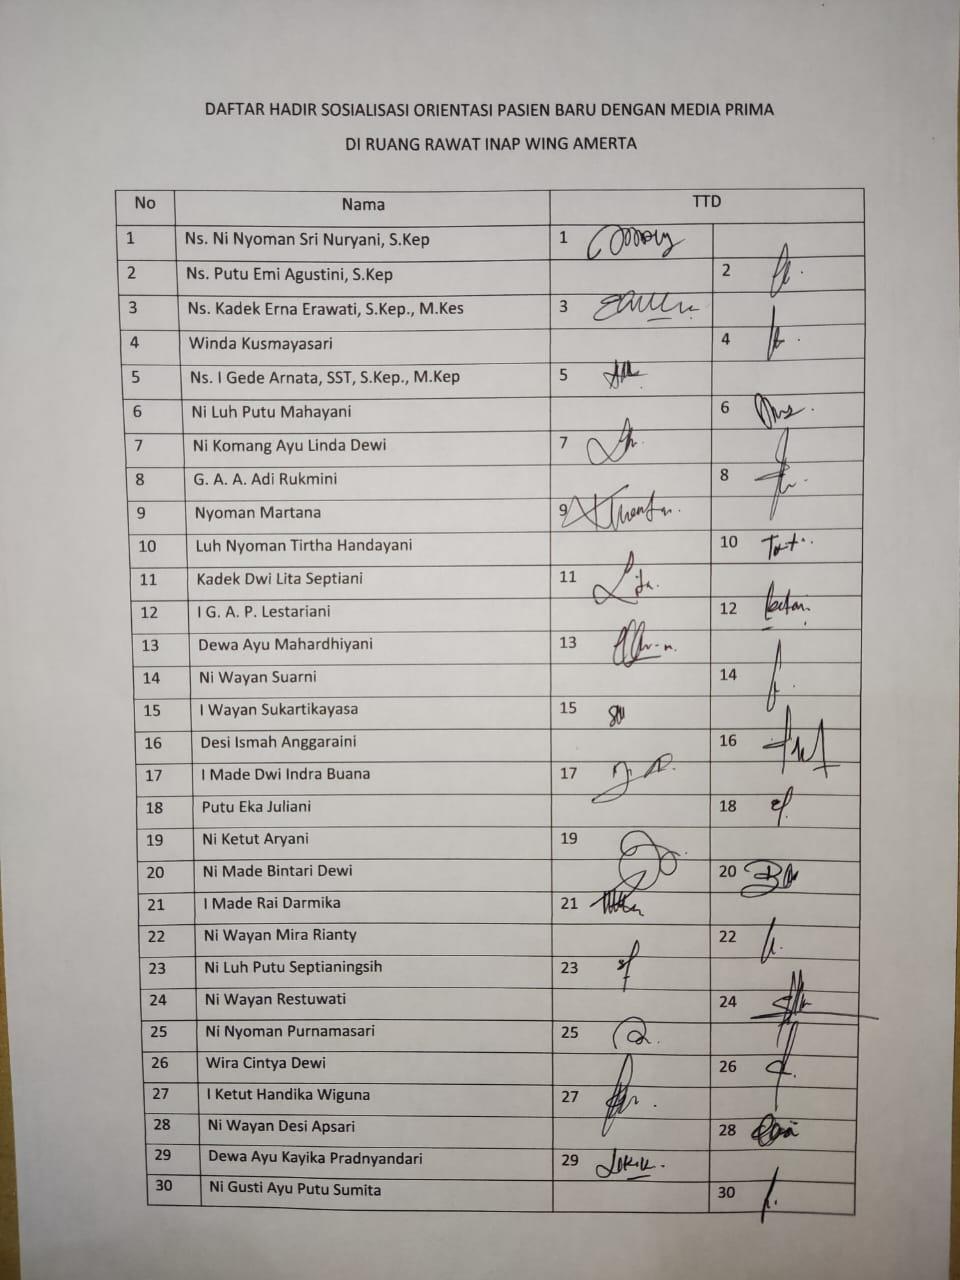 DAFTAR HADIR SOSIALISASI ORIENTASI PASIEN BARU DENGAN MEDIA PRIMA
DI RUANG RAWAT INAP WING AMERTA
No Nama TTD
1 Ns. Ni Nyoman Sri Nuryani, S.Kep 1
2 Ns. Putu Emi Agustini, S.Kep 2
3 Ns. Kadek Erna Erawati, S.Kep., M.Kes 3
4 Winda Kusmayasari 4
5 Ns. I Gede Arnata, SST, S.Kep., M.Kep 5
6 Ni Luh Putu Mahayani 6
7 Ni Komang Ayu Linda Dewi 7
8 G. A. A. Adi Rukmini 8
9 Nyoman Martana 9
10 Luh Nyoman Tirtha Handayani 10
11 Kadek Dwi Lita Septiani 11
12 I G. A. P. Lestariani 12
13 Dewa Ayu Mahardhiyani 13
14 Ni Wayan Suarni 14
15 I Wayan Sukartikayasa 15
16 Desi Ismah Anggaraini 16
17 I Made Dwi Indra Buana 17
18 Putu Eka Juliani 18
19 Ni Ketut Aryani 19
20 Ni Made Bintari Dewi 20
21 I Made Rai Darmika 21
22 Ni Wayan Mira Rianty 22
23 Ni Luh Putu Septianingsih 23
24 Ni Wayan Restuwati 24
25 Ni Nyoman Purnamasari 25
26 Wira Cintya Dewi 26
27 I Ketut Handika Wiguna 27
28 Ni Wayan Desi Apsari 28
29 Dewa Ayu Kayika Pradnyandari 29
30 Ni Gusti Ayu Putu Sumita 30